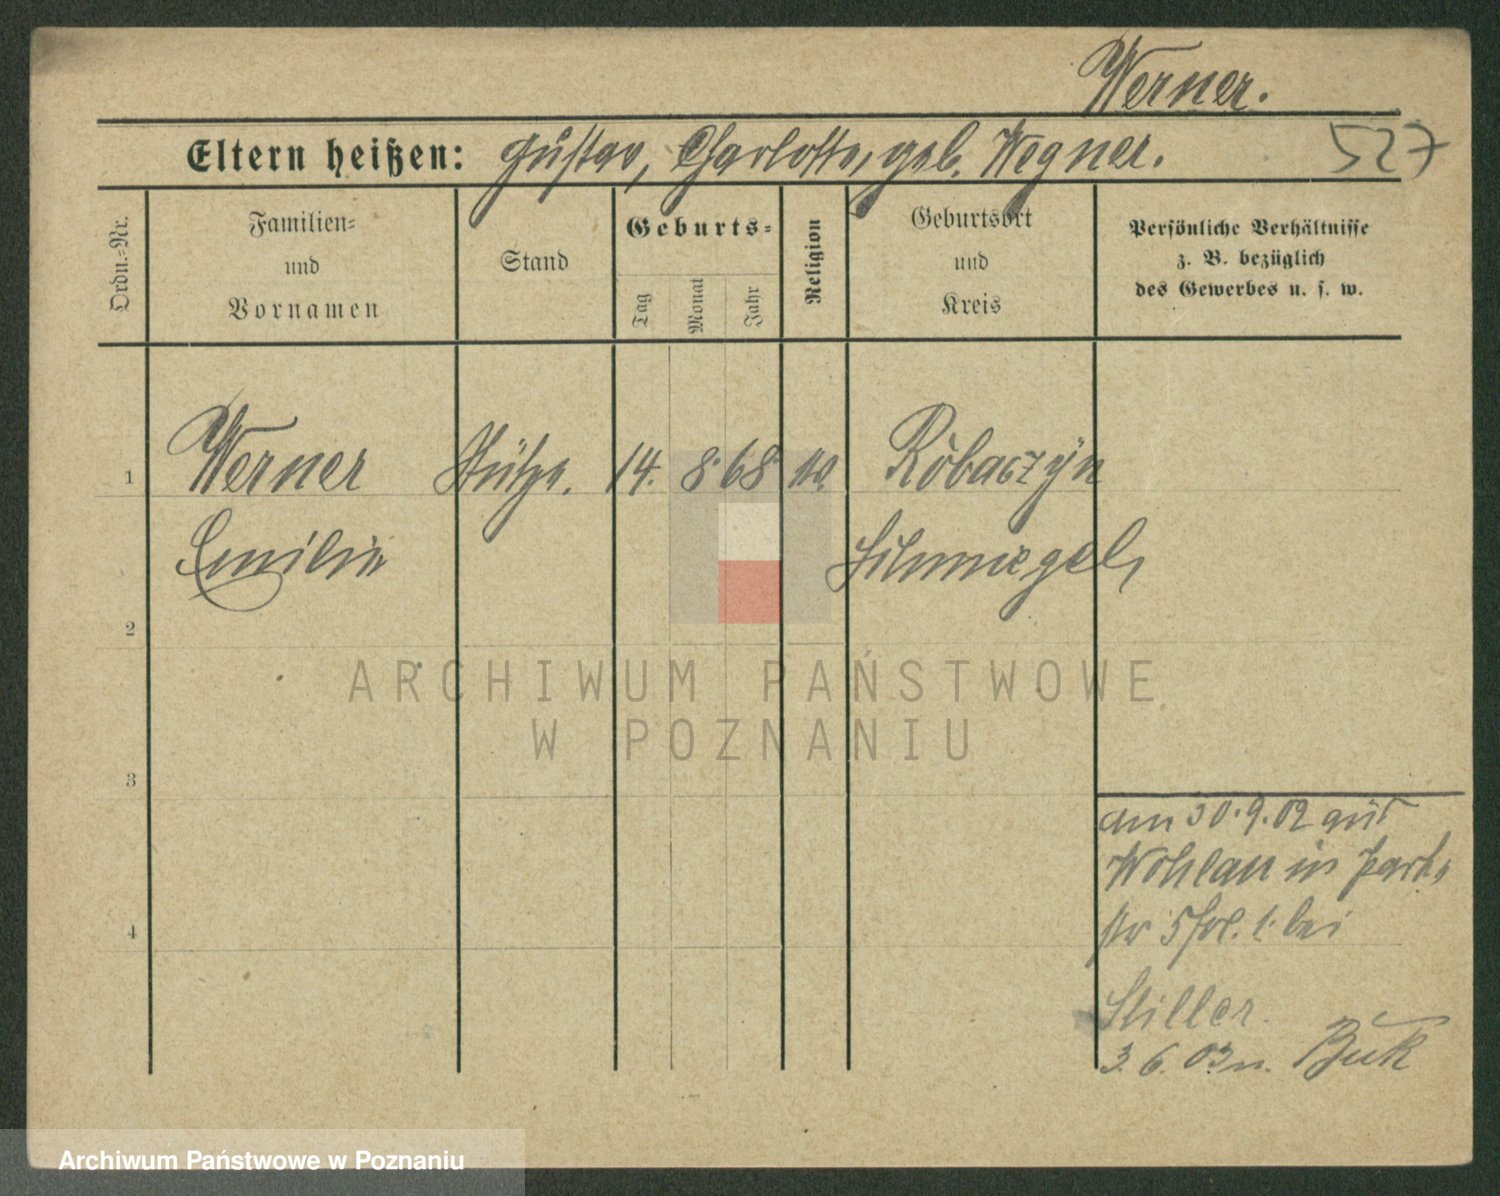 Werner.
Eltern heißen: Gustav, Charlotte, geb. Wegner. 527
Ordn.-Nr.
Familien-
und
Vornamen
Stand
Geburts-
Tag
Monat
Jahr
Religion
Geburtsort
und
Kreis
Persönliche Verhältnisse
z. B. bezüglich
des Gewerbes u. s. w.
1 Werner Stütze. 14. 8. 68 Robaczyn
Emilie Schmiegel,
2
3
4
am 30.9.02 aus
Wohlau in Park-
str 5 bei
Stiller.
3. 6. 03 n. Buk
ARCHIWUM PAŃSTWOWE
W POZNANIU
Archiwum Państwowe w Poznaniu